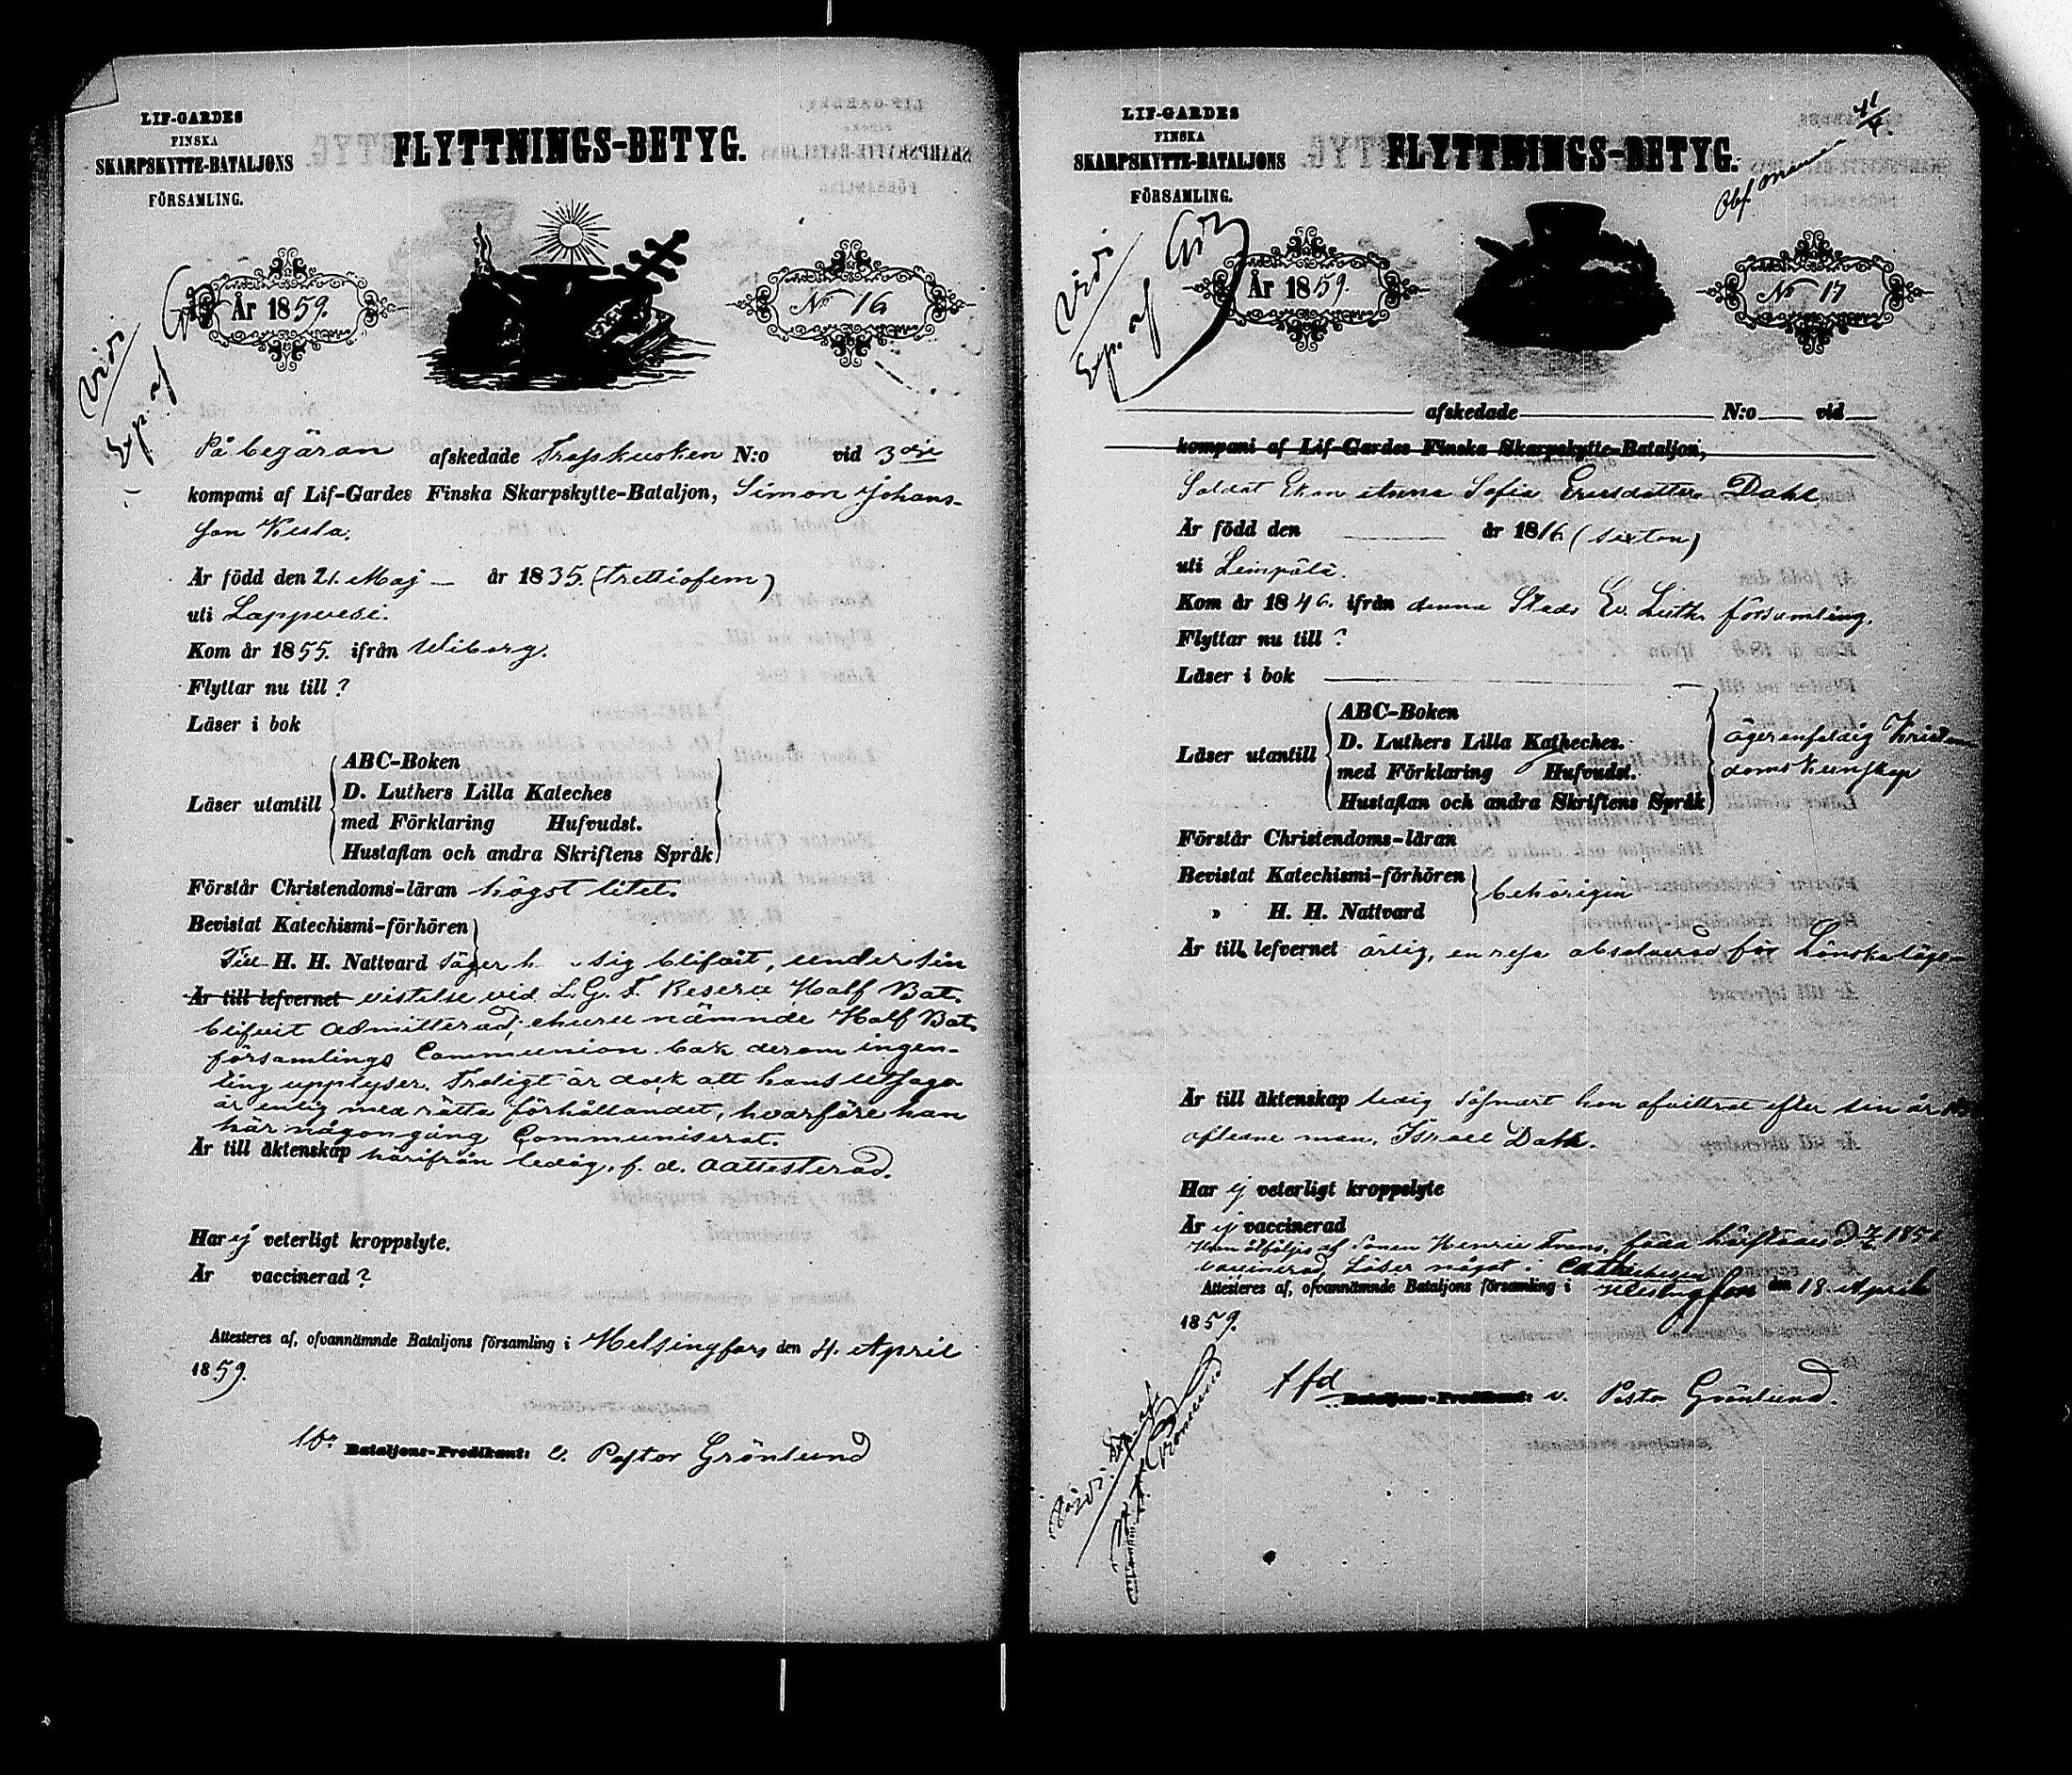 LIF-GARDES
FINSKA
SKARPSKYTTE-BATALJONS
FÖRSAMLING.
FLYTTNINGS-BETYG.
År 1859.
No 16
Vidi
Exp. af
På begäran afskedade Trosskusken N:o vid 3die
kompani af Lif-Gardes Finska Skarpskytte-Bataljon, Simon Johans-
son Kusla.
Är född den 21. Maj — år 1835. (trettiofem)
uti Lappvesi.
Kom år 1855. ifrån Wiborg.
Flyttar nu till ?
Läser i bok
Läser utantill
ABC-Boken
D. Luthers Lilla Kateches
med Förklaring Hufvudst.
Hustaflan och andra Skriftens Språk
Förstår Christendoms-läran högst litet.
Bevistat Katechismi-förhören
Till H. H. Nattvard säger h. sig blifvit, under sin
Är till lefvernet vistelse vid L. G. F. Reserv Half Bat.
blifvit admitterad, ehuru nämnde Half Bat.
församlings Communion bok derom ingen-
ting upplyser. Troligt är dock att hans utsago
är enlig med rätta förhållandet, hvarföre han
här någon gång Communiserat.
Är till äktenskap härifrån ledig, f. d. aattesterad.
Har ej veterligt kroppslyte.
Är vaccinerad ?
Attesteres af, ofvannämnde Bataljons församling i Helsingfors den 4. April
1859.
Bataljons-Predikant: v. Pastor Grönlund
LIF-GARDES
FINSKA
SKARPSKYTTE-BATALJONS
FÖRSAMLING.
FLYTTNINGS-BETYG.
År 1859.
No 17
Vidi
Exp. af
afskedade N:o vid
kompani af Lif-Gardes Finska Skarpskytte-Bataljon,
Soldat Enkan Anna Sofia Ericsdotter Dahl
Är född den — år 1816 (sexton)
uti Lempälä.
Kom år 1846. ifrån denna Stads Ev. Luth. församling.
Flyttar nu till ?
Läser i bok
Läser utantill
ABC-Boken
D. Luthers Lilla Katheches.
med Förklaring Hufvudst.
Hustaflan och andra Skriftens Språk
äger enfaldig Kristen
doms kunskap
Förstår Christendoms-läran
Bevistat Katechismi-förhören
" H. H. Nattvard
behörigen
Är till lefvernet ärlig, en resa absolverad för Lönskaläge
Är till äktenskap ledig såsnart hon afvittrat efter sin år
aflidne man, Israel Dahl.
Har ej veterligt kroppslyte
Är ej vaccinerad
Hon åtföljes af Sonen Henric Frans, född härstädes d.
vaccinerad, Läser något i Cathechesen
Attesteres af, ofvannämnde Bataljons församling i Helsingfors den 18. April
1859.
Bataljons-Predikant: v. Pastor Grönlund.